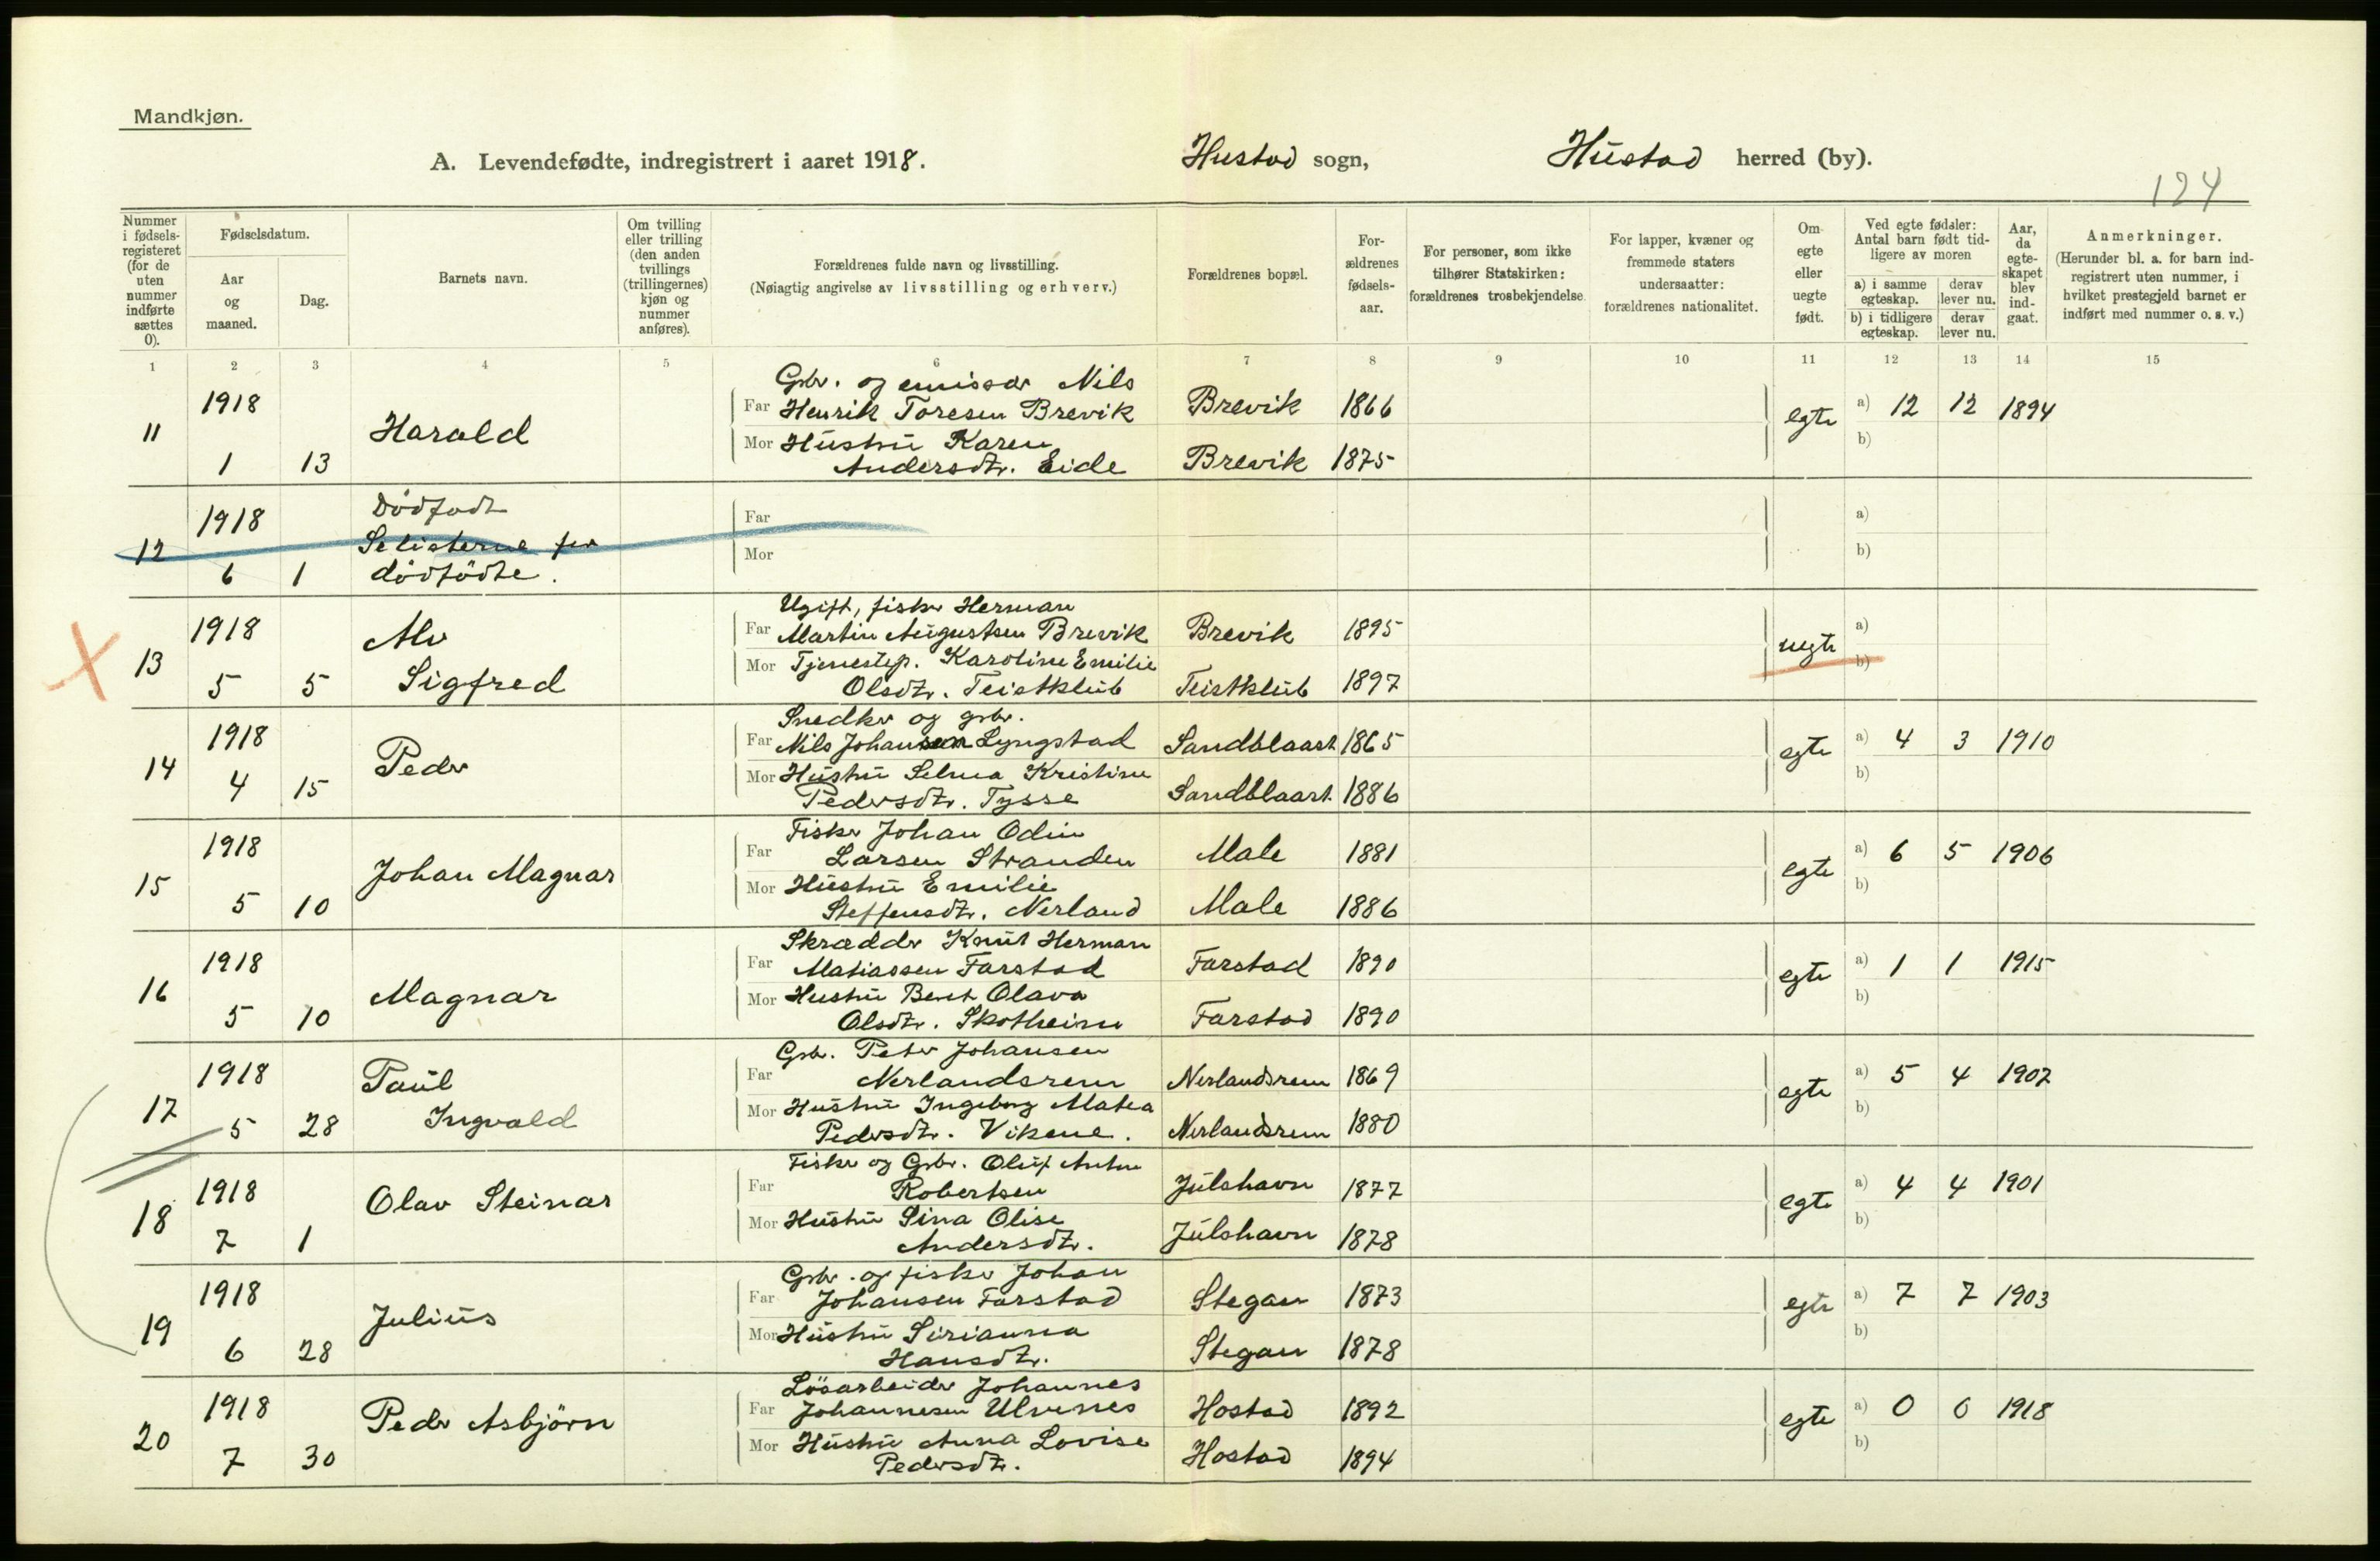 Mandkjøn.
A. Levendefødte, indregistrert i aaret 1918. Hustad sogn, Hustad herred (by).
124
Nummer i fødsels-registeret (for de uten nummer indførte sættes 0).
Fødselsdatum.
Aar og maaned.
Dag.
Barnets navn.
Om tvilling eller trilling (den anden tvillings (trillingernes) kjøn og nummer anføres).
Forældrenes fulde navn og livsstilling.
(Nøiagtig angivelse av livsstilling og erhverv.)
Forældrenes bopæl.
For-ældrenes fødsels-aar.
For personer, som ikke tilhører Statskirken: forældrenes trosbekjendelse.
For lapper, kvæner og fremmede staters undersaatter: forældrenes nationalitet.
Om egte eller uegte født.
Ved egte fødsler: Antal barn født tid-ligere av moren
a) i samme egteskap.
derav lever nu.
b) i tidligere egteskap.
derav lever nu.
Aar, da egte-skapet blev ind-gaat.
Anmerkninger.
(Herunder bl. a. for barn ind-registrert uten nummer, i hvilket prestegjeld barnet er indført med nummer o. s. v.)
1 2 3 4 5 6 7 8 9 10 11 12 13 14 15
Gbr. og emissær Nils
11 1918 Harald Far Henrik Toresen Brevik Brevik 1866 egte a) 12 12 1894
1 13 Mor Hustru Karen b)
Andersdtr. Eide Brevik 1875
12 1918 Dødfødt Far a)
Se listerne for Mor b)
6 1 dödfödte.
Ugift, fisker Herman
13 1918 Alv Far Martin Augustsen Brevik Brevik 1895 uegte a)
5 5 Sigfred Mor Tjenestep. Karoline Emilie b)
Olsdtr. Teistklub Teistklub 1897
Snedker og gbr.
14 1918 Peder Far Nils Johansen Lyngstad Sandblaast 1865 egte a) 4 3 1910
4 15 Mor Hustru Selma Kristine b)
Pedersdtr. Tysse Sandblaast 1886
Fisker Johan Odin
15 1918 Johan Magnar Far Larsen Stranden Male 1881 egte a) 6 5 1906
5 10 Mor Hustru Emilie b)
Steffensdtr. Nerland Male 1886
Skrædder Knut Herman
16 1918 Magnar Far Matiassen Farstad Farstad 1890 egte a) 1 1 1915
5 10 Mor Hustru Beret Olava b)
Olsdtr. Skotheim Farstad 1890
Gbr. Peter Johansen
17 1918 Paul Far Nerlandsrem Nerlandsrem 1869 egte a) 5 4 1902
5 28 Ingvald Mor Hustru Ingeborg Matea b)
Pedersdtr. Vikene. Nerlandsrem 1880
Fisker og Gbr. Oluf Anton
18 1918 Olav Steinar Far Robertsen Julshavn 1877 egte a) 4 4 1901
7 1 Mor Hustru Sina Olise b)
Andersdtr. Julshavn 1878
Gbr. og fisker Johan
19 1918 Julius Far Johansen Farstad Stegan 1873 egte a) 7 7 1903
6 28 Mor Hustru Sirianna b)
Hansdtr. Stegan 1878
Lösarbeider Johannes
20 1918 Peder Asbjörn Far Johannesen Ulvenes Hostad 1892 egte a) 0 0 1918
7 30 Mor Hustru Anna Lovise b)
Pedersdtr. Hostad 1894